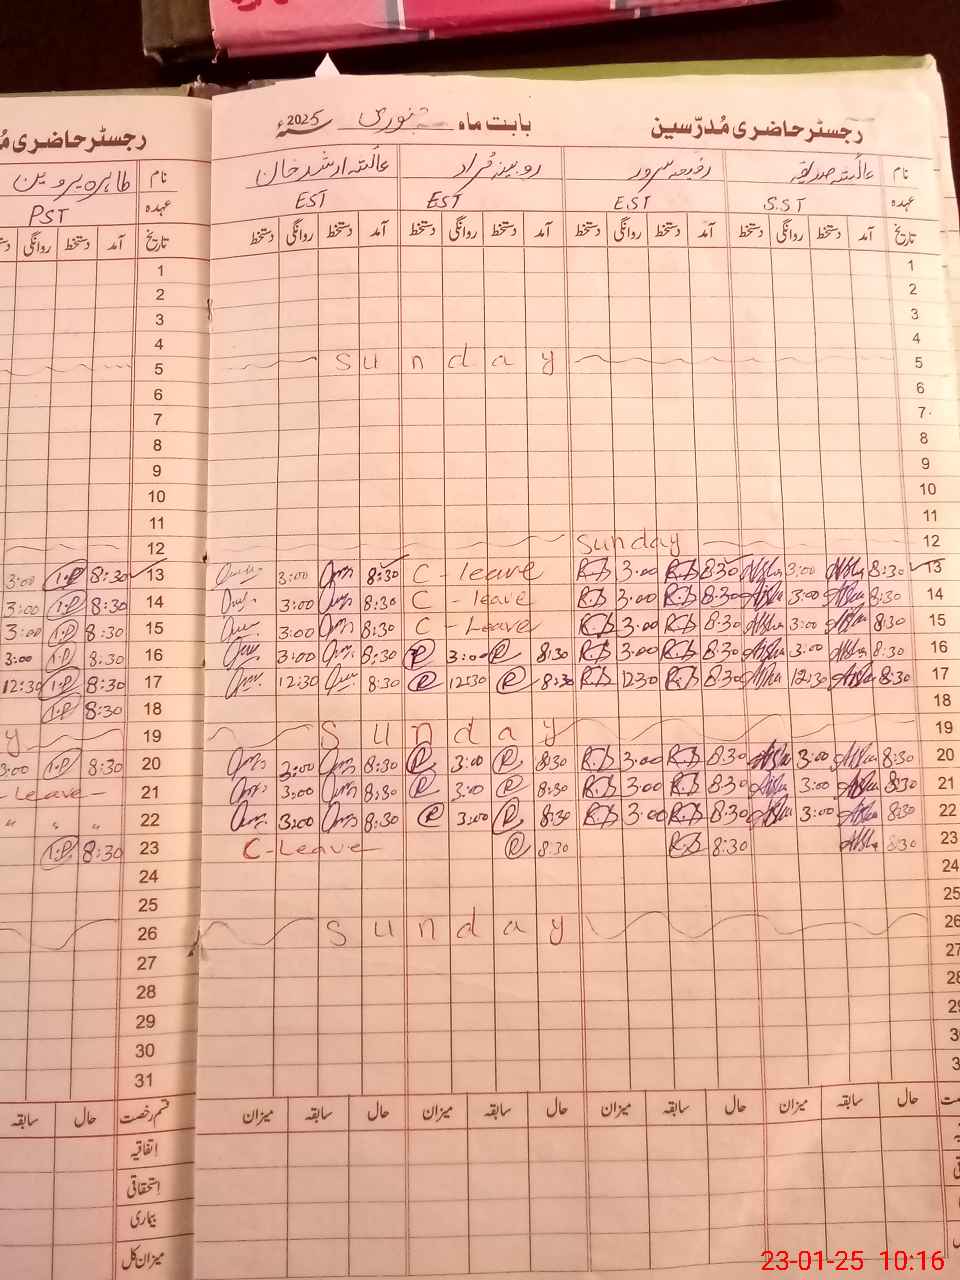 رجسٹر حاضری مُدرّسین بابت ماہ جنوری سنہ 2025ء
نام عائشہ صدیقہ رفیعہ سرور روبینہ مُراد عائشہ ارشد خان
عہدہ S.ST EST EST EST
تاریخ آمد دستخط روانگی دستخط آمد دستخط روانگی دستخط آمد دستخط روانگی دستخط آمد دستخط روانگی دستخط
1
2
3
4
5 Sunday
6
7
8
9
10
11
12 Sunday
13 8:30 3:00 8:30 R.S 3:00 R.S C-leave 8:30 3:00
14 8:30 3:00 8:30 R.S 3:00 R.S C-leave 8:30 3:00
15 8:30 3:00 8:30 R.S 3:00 R.S C-Leave 8:30 3:00
16 8:30 3:00 8:30 R.S 3:00 R.S 8:30 3:00 8:30 3:00
17 8:30 12:30 8:30 R.S 12:30 R.S 8:30 12:30 8:30 12:30
18
19 Sunday
20 8:30 3:00 8:30 R.S 3:00 R.S 8:30 3:00 8:30 3:00
21 8:30 3:00 8:30 R.S 3:00 R.S 8:30 3:00 8:30 3:00
22 8:30 3:00 8:30 R.S 3:00 R.S 8:30 3:00 8:30 3:00
23 8:30 8:30 R.S 8:30 C-Leave
24
25
26 Sunday
27
28
29
30
31
حال سابقہ میزان حال سابقہ میزان حال سابقہ میزان حال سابقہ میزان
رجسٹر حاضری
نام طاہرہ پروین
عہدہ PST
تاریخ آمد دستخط روانگی
1
2
3
4
5
6
7
8
9
10
11
12
13 8:30 T.P 3:00
14 8:30 T.P 3:00
15 8:30 T.P 3:00
16 8:30 T.P 3:00
17 8:30 T.P 12:30
18 8:30 T.P
19 y
20 8:30 T.P 3:00
21 -Leave-
22 " " "
23 8:30 T.P
24
25
26
27
28
29
30
31
قسم رخصت حال سابقہ
اتفاقیہ
استحقاقی
بیماری
میزان کل
23-01-25 10:16